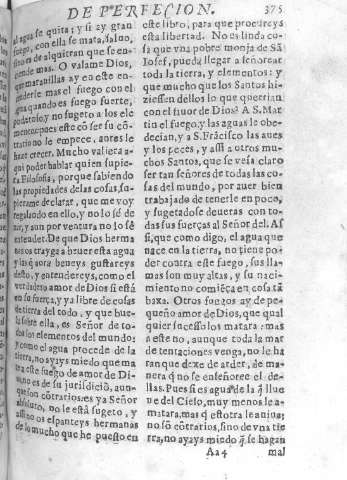 DE PERFECION. 375
el agua se quita; y si ay gran
fuego, con ella se mata, salvo,
sino es de alquitran que se en-
ciende mas. O valame Dios,
que marauillas ay en este en-
cenderse mas el fuego con el
agua quando es fuego fuerte,
poderoso, y no sugeto a los ele
mentos; pues este cõ ser su cõn-
trario no le empece, antes le
haze crecer. Mucho valiera a-
qui poder hablar quien supie-
ra Filosofia, porque sabiendo
las propiedades delas cosas, su-
pierame declarar, que me voy
regalando en ello, y no lo sé de
zir, y aun por ventura no lo sé
entender. De que Dios herma
nas os trayga à beuer esta agua
y las que aora beueys gustareys
desto, y entendereys, como el
verdadero amor de Dios si està
en su fuerça, y ya libre de cosas
de tierra del todo, y que bue-
la sobre ella, es Señor de to-
dos los elementos del mundo:
y como el agua procede de la
tierra, no ayays miedo que ma
ta este fuego de amor de Di-
no es de su jurisdiciõ, aun-
que son cõtrarios: es ya Señor
absoluto, no le està sugeto, y
assi no os espanteys hermanas
de lo mucho que he puesto en
este libro, para que procureys
esta libertad. No es linda co-
sa que vna pobre monja de San
Iosef, pueda llegar à señorear
toda la tierra, y elementos: y
que mucho que los Santos hi-
ziessen dellos lo que querian
con el fauor de Dios? A S. Mar
tin el fuego, y las aguas le obe-
decian, y a S. Frãcisco las aues
y los peces, y assi a otros mu-
chos Santos, que se veia claro
ser tan señores de todas las co-
sas del mundo, por auer bien
trabajado de tenerle en poco,
y sugetadose deueras con to-
das sus fuerças al Señor del. As
si, que como digo, el agua que
nace en la tierra, no tiene po-
der contra este fuego, sus lla-
mas son muy altas, y su naci-
miento no comiẽça en cosa tã
baxa. Otros fuegos ay de pe-
queño amor de Dios, que qual
quier sucesso los matara: mas
a este no, aunque toda la mar
de tentaciones venga, no le ha
ran que dexe de arder, de ma-
nera q̃ no se enseñoree el de-
llas. Pues si es agua de la q̃ llue
ue del Cielo, muy menos le a-
matara, mas q̃ estotra le auiua;
no sõ cõtrarios, sino de vna tie
rra, no ayays miedo q̃ se hagan
Aa 4 mal